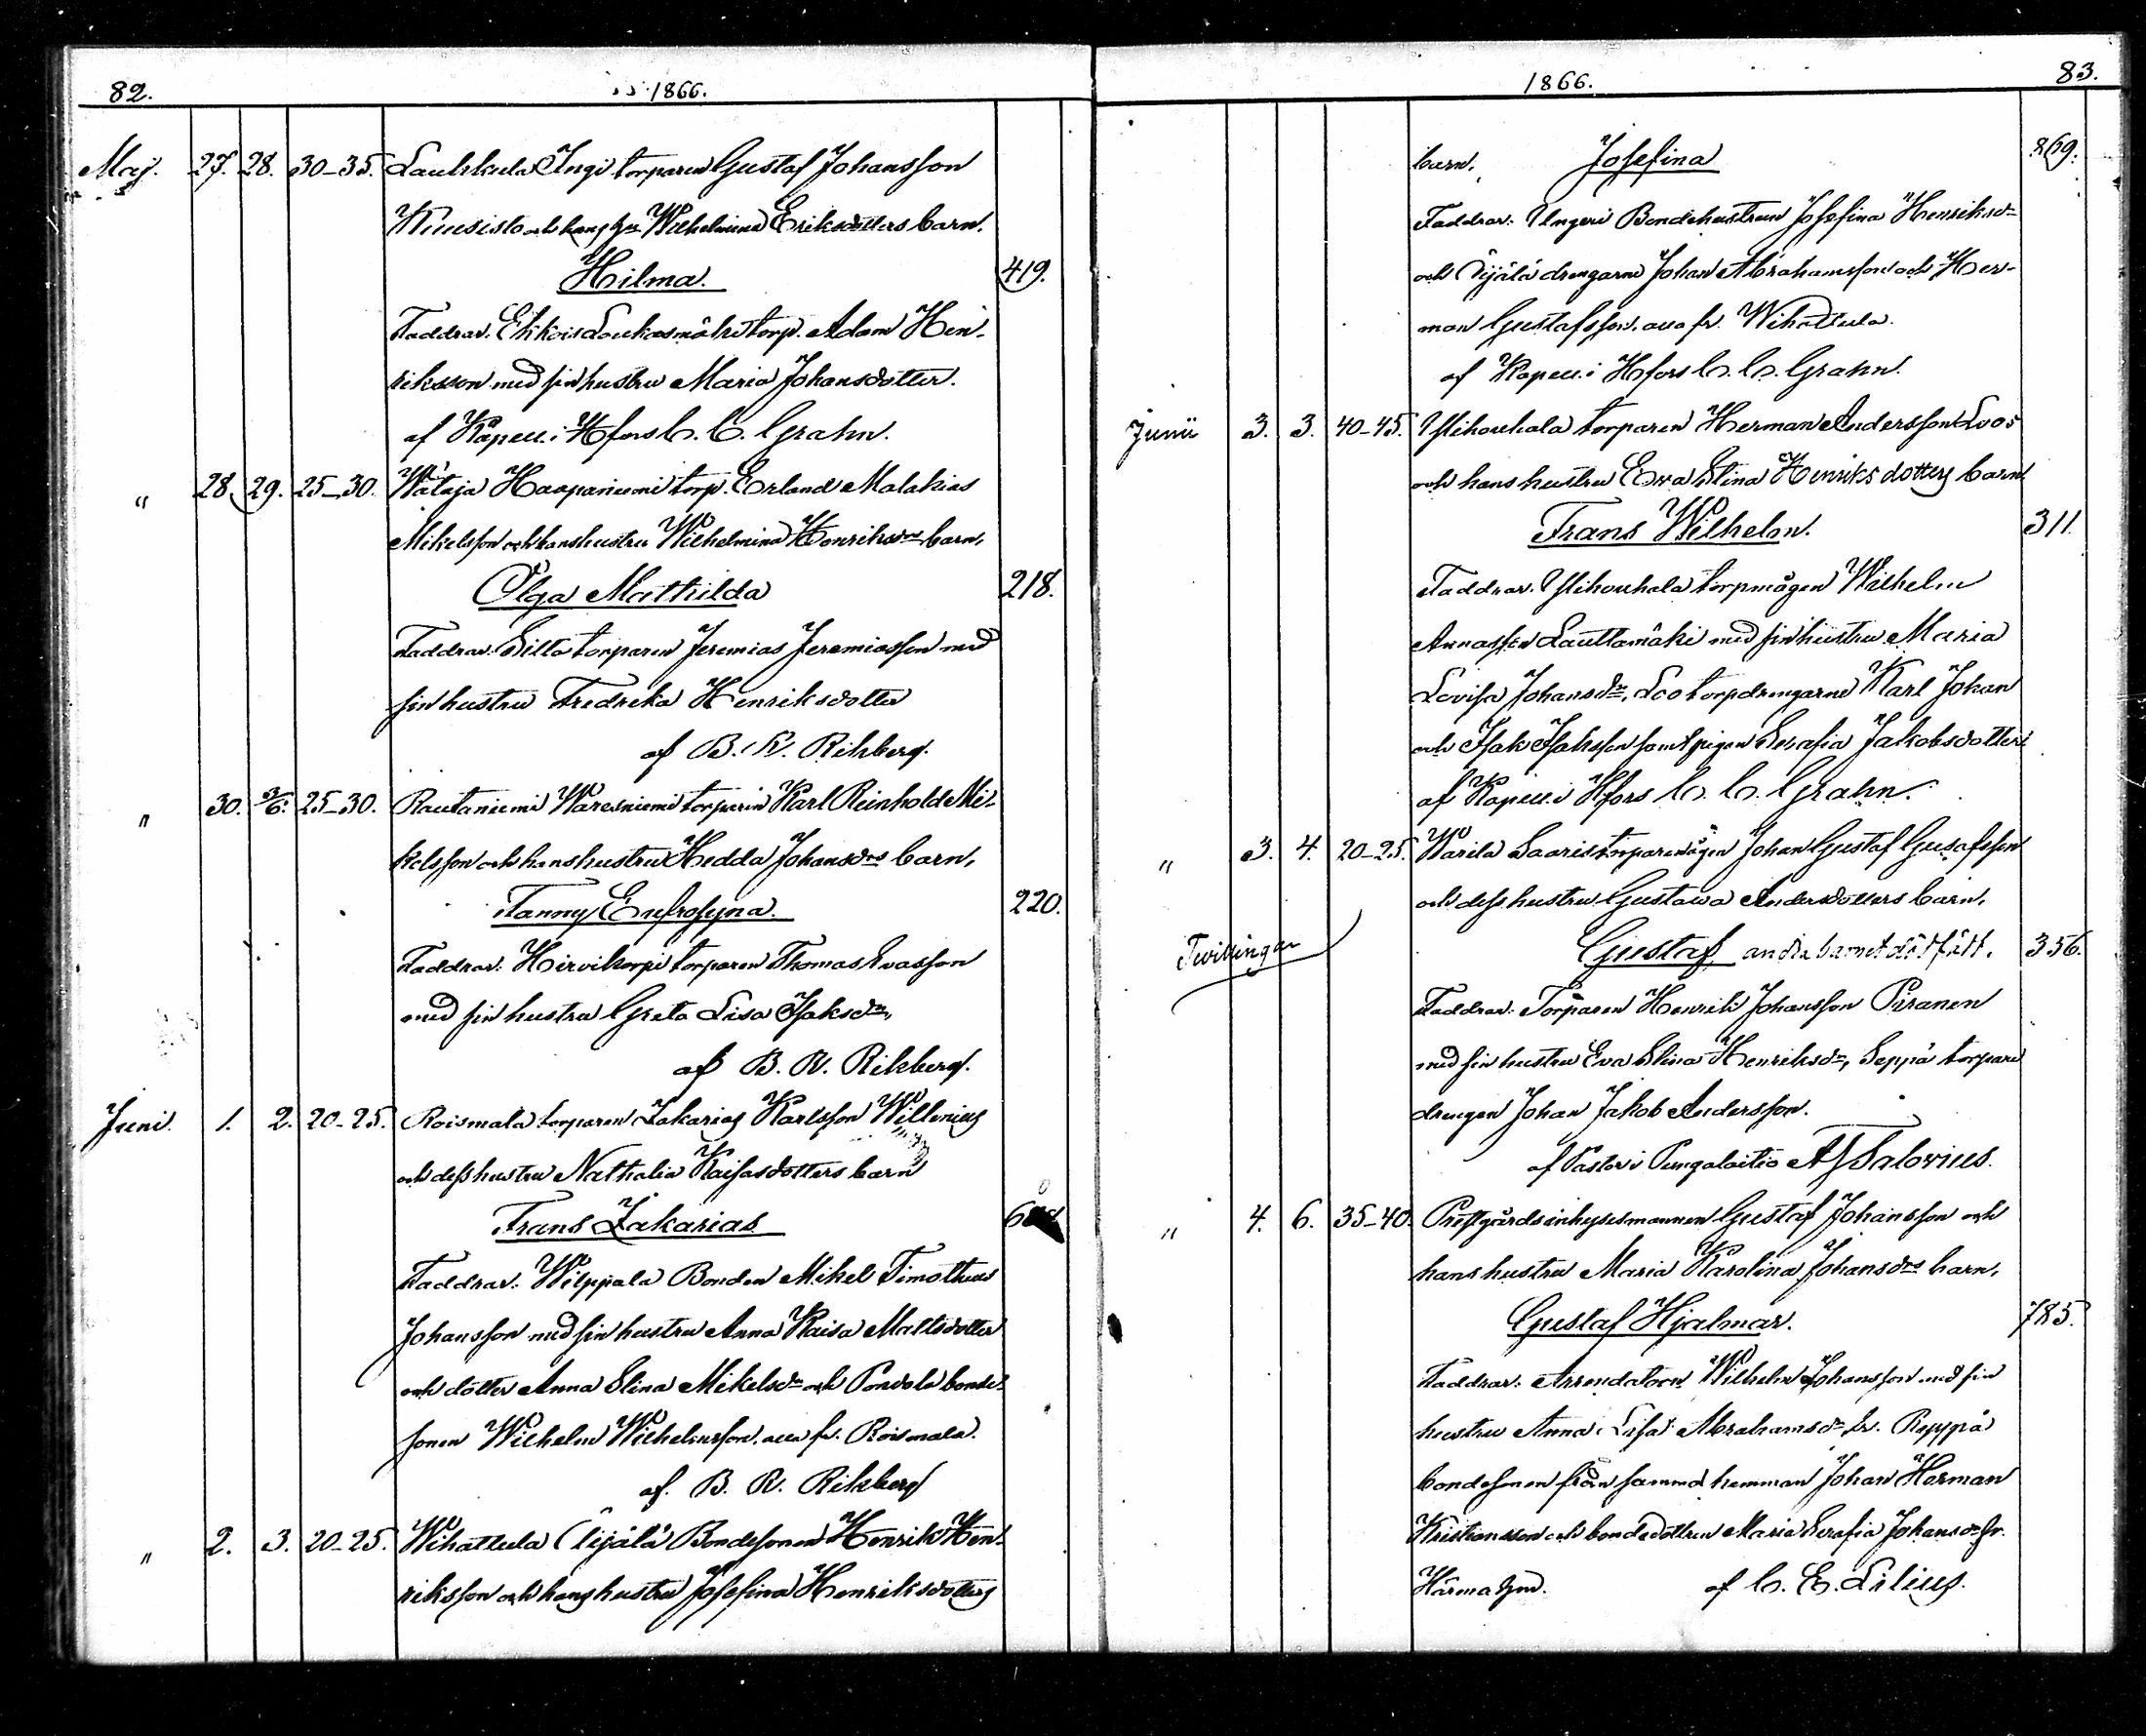 82.
1866.
Maj. 27. 28. 30-35. Lauhkula Ingi torparen Gustaf Johansson
Kuusisto och hans hu Wilhelmina Eriksdotters barn,
Hilma. 419.
Faddrar. Ekkois Loukasmäki torp. Adam Hen-
riksson med sin hustru Maria Johansdotter.
af Kapell. i Hfors C. C. Grahn.
" 28. 29. 25-30. Wätaja Haapaniemi torp. Erland Malakias
Mikelsson och hans hustru Wilhelmina Henriksdrs barn,
Olga Mathilda 218.
Faddrar. Silta torparen Jeremias Jeremiasson med
sin hustru Fredrika Henriksdotter
af B. R. Rikberg.
" 30. 3/6. 25-30. Rautaniemi Waresniemi torparen Karl Reinhold Mi-
kelsson och hans hustru Hedda Johansdrs barn,
Fanny Eufrosyna. 220.
Faddrar. Hirvikorpi torparen Thomas Evasson
med sin hustru Greta Lisa Isaksdr,
af B. R. Rikberg.
Juni. 1. 2. 20-25. Roismala torparen Zakarias Karlsson Willenius
och dess hustru Nathalia Kaisasdotters barn
Frans Zakarias
Faddrar. Wilppala Bonden Mikel Timotheus
Johansson med sin hustru Anna Kaisa Mattsdotter
och dotter Anna Elina Mikelsdr och Ponvola bonde-
sonen Wilhelm Wilhelmsson, alla fr. Roismala.
af. B. R. Rikberg
" 2. 3. 20-25. Wihattula Äijälä Bondesonen Henrik Hen-
riksson och hans hustru Josefina Henriksdotters
1866.
83.
barn, Josefina 869.
Faddrar. Ungeri Bondehustrun Josefina Henriksdr
och Äijälä drengarne Johan Abrahamsson och Her-
man Gustafsson, alla fr. Wihattula.
af Kapell. i Hfors C. C. Grahn.
Junii 3. 3. 40-45. Ylihouhala torparen Herman Andersson Loos
och hans hustru Ewa Stina Henriksdotters barn,
Frans Wilhelm. 311.
Faddrar. Ylihouhala torpmågen Wilhelm
Annasson Lauttamäki med sin hustru Maria
Lovisa Johansdr, Loo torpdrengarne Karl Johan
och Isak Isaksson samt pigan Serafia Jakobsdotter
af Kapell. i Hfors C. C. Grahn.
" 3. 4. 20-25. Warila Saaris torparemågen Johan Gustaf Gusafsson
och dess hustru Gustawa Andersdotters barn,
Twillingar
Gustaf, andra barnet dödfödt. 356.
Faddrar. Torparen Henrik Johansson Piranen
med sin hustru Eva Stina Henriksdr, Seppä torpare
drengen Johan Jakob Andersson.
af Pastor i Pungalaitio A J Salovius.
" 4. 6. 35-40. Prestgårds inhysesmannen Gustaf Johansson och
hans hustru Maria Karolina Johansdrs barn,
Gustaf Hjalmar. 785.
Faddrar. Arrendatorn Wilhelm Johansson med sin
hustru Anna Lisa Abrahamsdr fr. Reppä
bondesonen från samma hemman Johan Herman
Kristiansson och bondedottren Maria Serafia Johansdr fr.
Härmä af C. E. Lilius.